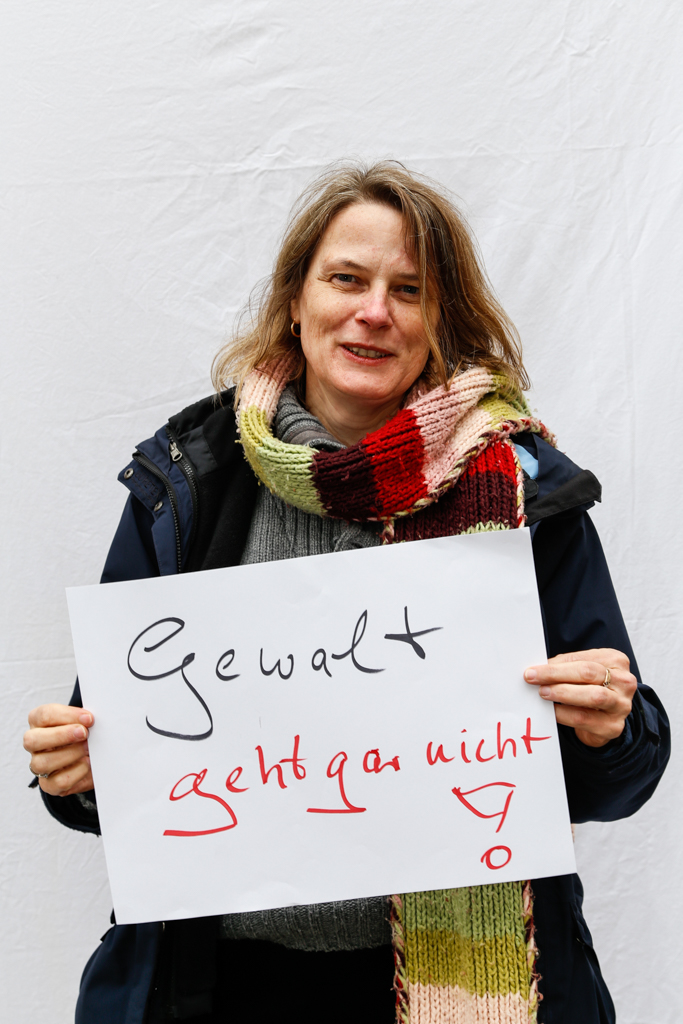 Gewalt
geht gar nicht
!